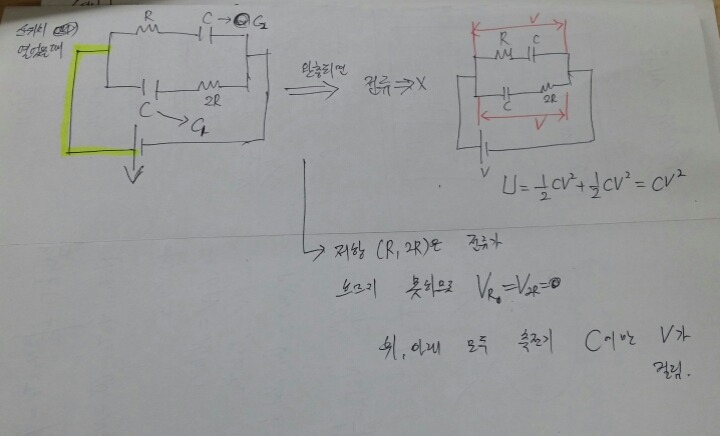 스위치
열었을 때
R
C → C₂
C → C₁
2R
V
완충되면
전류 ⇒ X
V
R
C
C
2R
V
V
U = ½CV² + ½CV² = CV²
저항 (R, 2R)은 전류가
흐르지 못하므로 V_R = V_2R = 0
위, 아래 모두 축전기 C에만 V가
걸림.